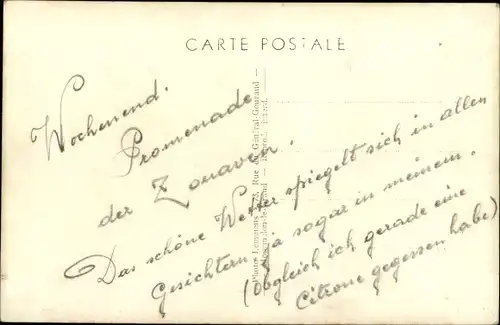 CARTE POSTALE
Wochenend.
Promenade
der Zouaven.
Das schöne Wetter spiegelt sich in allen
Gesichtern, ja sogar in meinem.
(Obgleich ich gerade eine
Citrone gegessen habe)
Photo Lemmens Rue du Général-Gouraud —